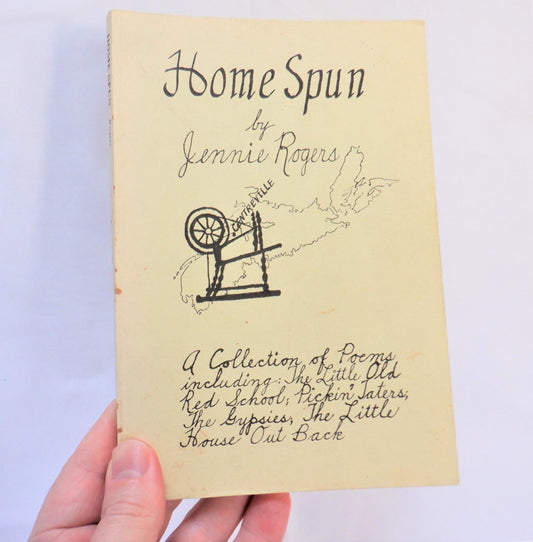 Home Spun
by
Jennie Rogers
CENTREVILLE
A Collection of Poems
including: The Little Old
Red School; Pickin' Taters;
The Gypsies; The Little
House Out Back
HOME SPUN